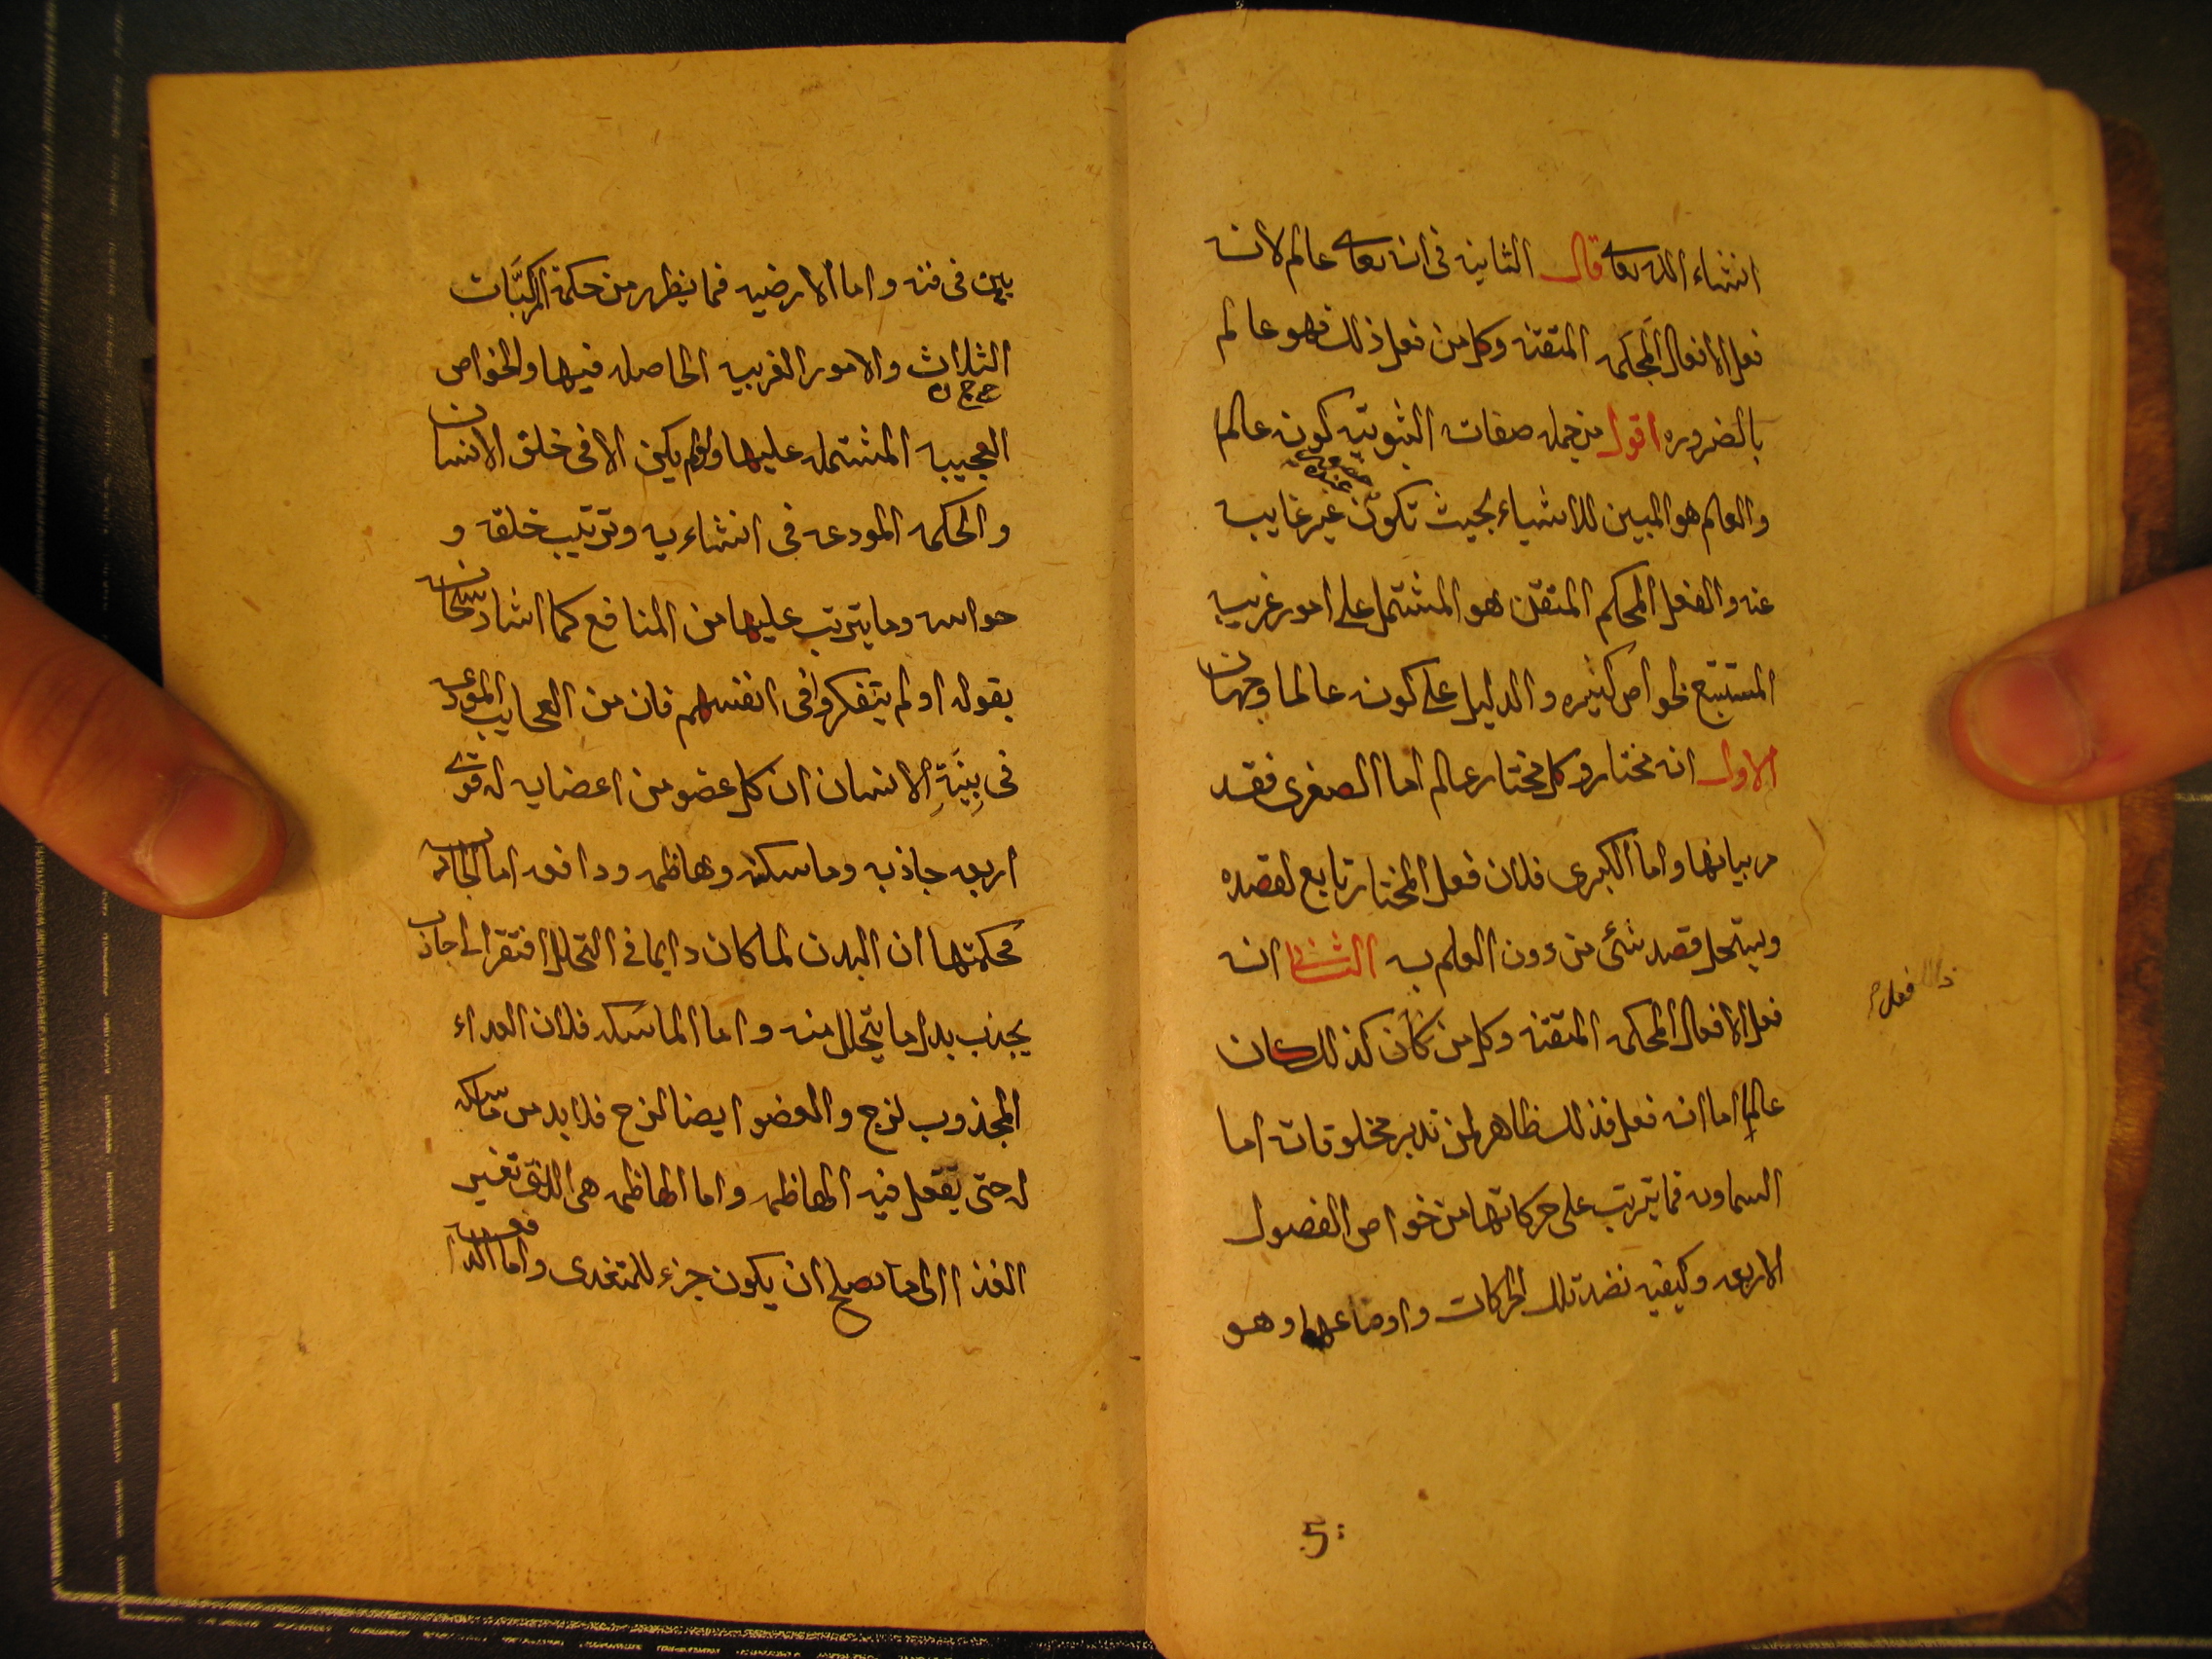 انشاء الله تعالى قال الثانيه فى انه تعالى عالم لانه
فعل الافعال المحَكمه المتقنه وكل من فعل ذلك فهو عالم
بالضروره اقول من جمله صفاته الثبوتيه كونه عالما
والعالم هو المبين للاشياء بحيث تكون غير غايبه
عنه والفعل المحكم المتقن هو المشتمل على امور غريبه
المستتبع لخواص كثيره والدليل على كونه عالما وجهان
الاول انه مختار وكل مختار عالم اما الصغرى فقد
مر بيانها واما الكبرى فلان فعل المختار تابع لقصده
ويستحل قصد شئ من دون العلم به الثانى انه
فعل الافعال المحكمه المتقنه وكل من كان كذلك كان
عالما اما انه فعل فذلك ظاهر لمن تدبر مخلوقاته اما
السماويه فما يترتب على حركاتها من خواص الفصول
الاربعه وكيفيه نضد تلك الحركات واوضاعها وهو
فعل م
5
بين فى فنه واما الارضيه فما يظهر من حكمة المركبَّات
الثلاث والامور الغريبه الحاصله فيها والخواص
العجيبه المشتمله عليها ولو لم يكن الا فى خلق الانسان
والحكمه المودعه فى انشاءيه وترتيب خلقه و
حواسه وما يترتب عليها من المنافع كما اشار سبحانه
بقوله او لم يتفكروا فى انفسهم فان من العجايب المودعه
فى بِنيَةِ الانسان ان كل عضو من اعضايه له قوى
اربعه جاذبه وماسكه وهاظمه ودافعه اما الجاذبه
فحكمتها ان البدن لما كان دايما فى التحلل افتقر الى جاذبه
يجذب بدل ما يتحلل منه واما الماسكه فلان الغداء
المجذوب لزج والعضو ايضا لزج فلا بد من ماسكه
له حتى يفعل فيه الهاظمه واما الهاظمه هى اللتى تغير
الغذا الى ما يصلح ان يكون جزء للمتغدى واما الدافعه